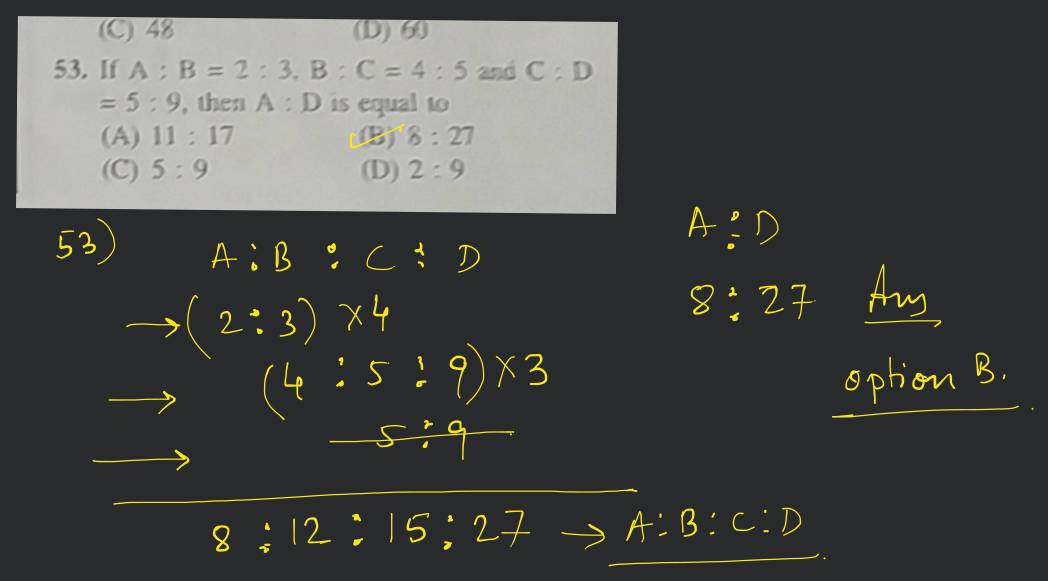 (C) 48 (D) 60
53. If A : B = 2 : 3, B : C = 4 : 5 and C : D
= 5 : 9, then A : D is equal to
(A) 11 : 17 (B) 8 : 27
(C) 5 : 9 (D) 2 : 9
53)
A : B : C : D
→ (2 : 3) ×4
→ (4 : 5 : 9) ×3
→ 5 : 9
8 : 12 : 15 : 27 → A : B : C : D
A : D
8 : 27 Ans
option B.